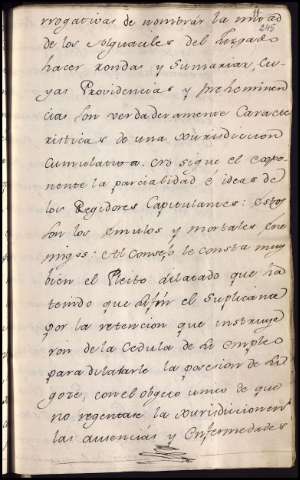 245
rrogativas de nombrar la mitad
de los Alguaciles del Juzgado
hacer rondas y Sumarias, Cu-
yas Providencias y preheminen-
cias son verdaderamente Caracte-
risticas de una Jurisdiccion
Cumulativa. Aqui sigue el expo-
nente la parcialidad e ideas de
los Regidores Capitulantes: estos
son los emulos y mortales ene-
migos: Al Consejo le consta muy
bien el Pleito dilatado que ha
tenido que el Suplicante
por la retencion que instruye-
ron de la Cedula de su empleo
para dilatarle la posesion de
con el objeto unico de que
no regentase la Jurisdiccion en
las ausencias y enfermedades